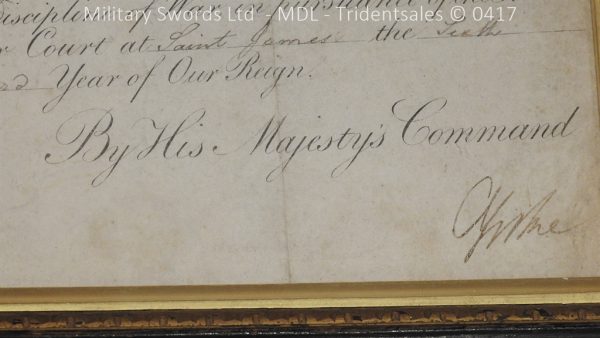 Military Swords Ltd - MDL - Tridentsales © 0417
Discipline of War in pursuance of
Court at Saint James's the
Year of Our Reign.
By His Majesty's Command